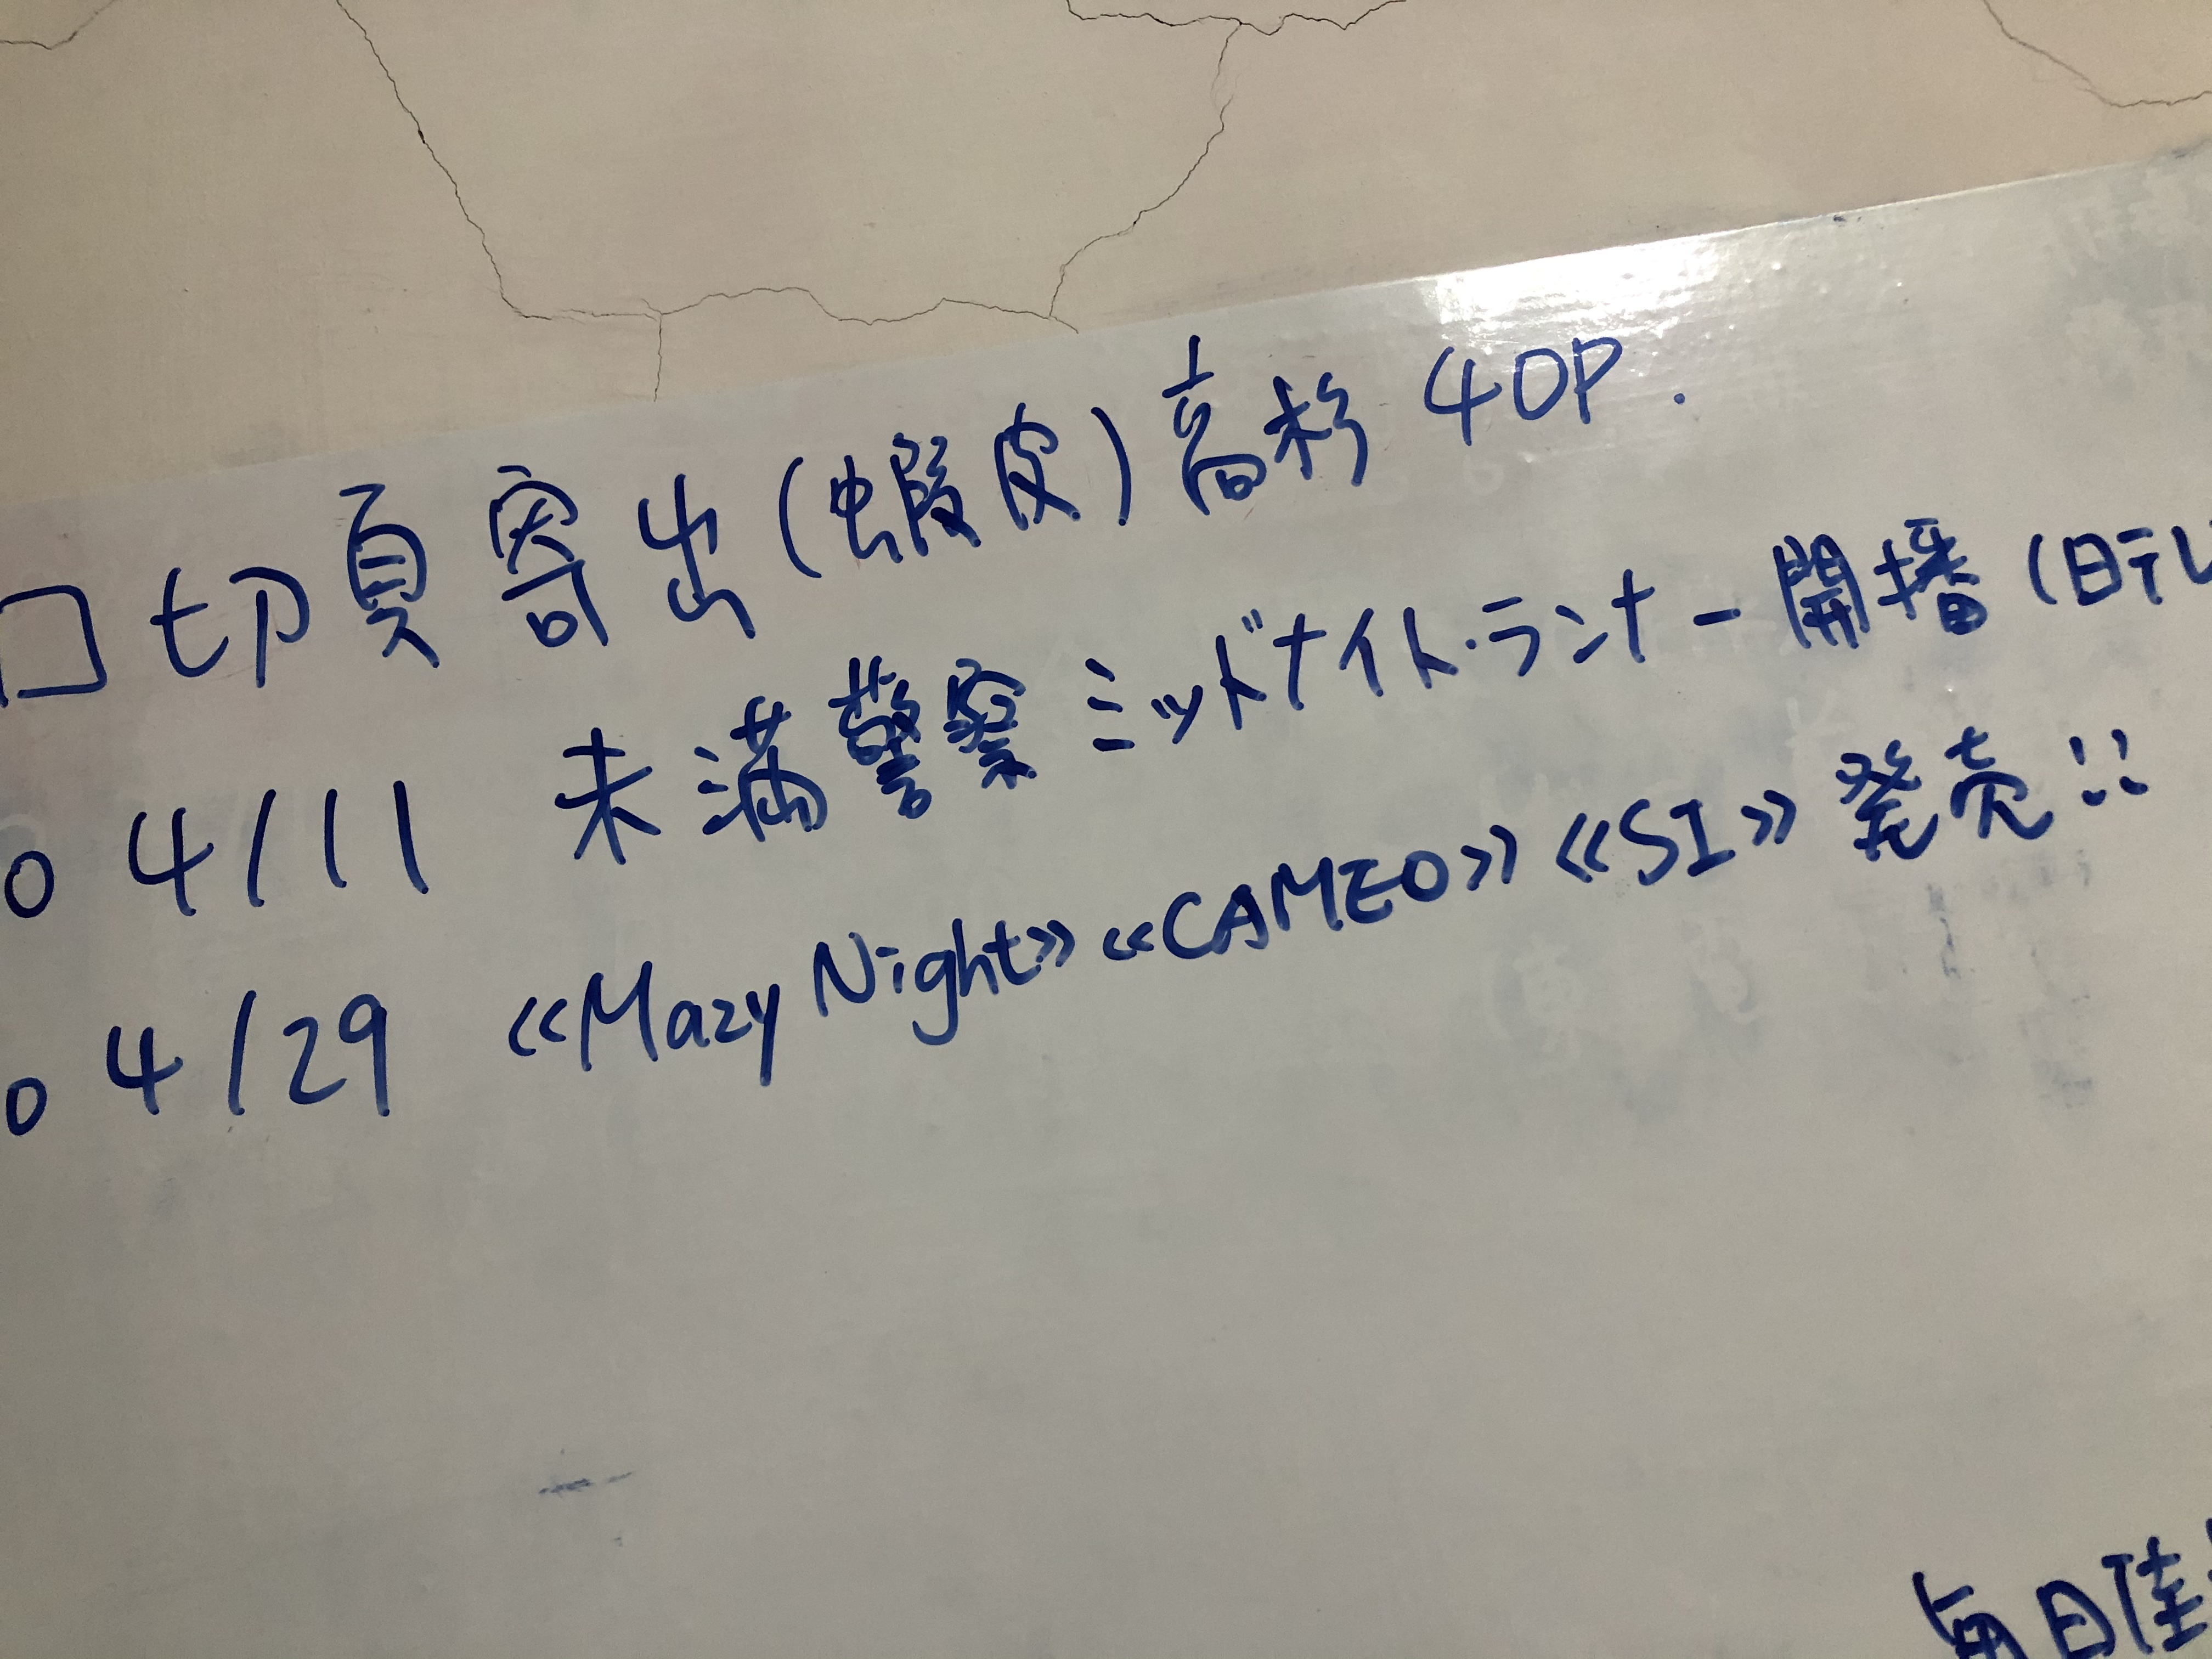 □ 切頁寄出(蝦皮)高杉 40P.
o 4/11 未滿警察 ミッドナイト・ランナー 開播 (日テレ
o 4/29 《Mazy Night》《CAMEO》《SI》発売!!
每日佳